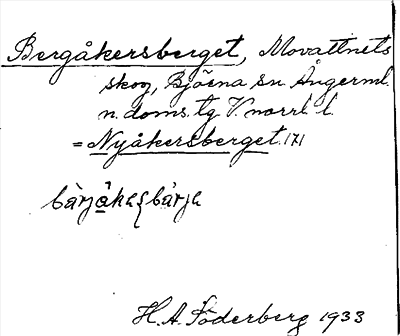 Bergåkersberget, Movattnets
skog, Björna sn Ångerml.
n. doms. tg V. norrl. l.
= Nyåkersberget 171
bàrjåka bàrja
H.A. Söderberg 1933